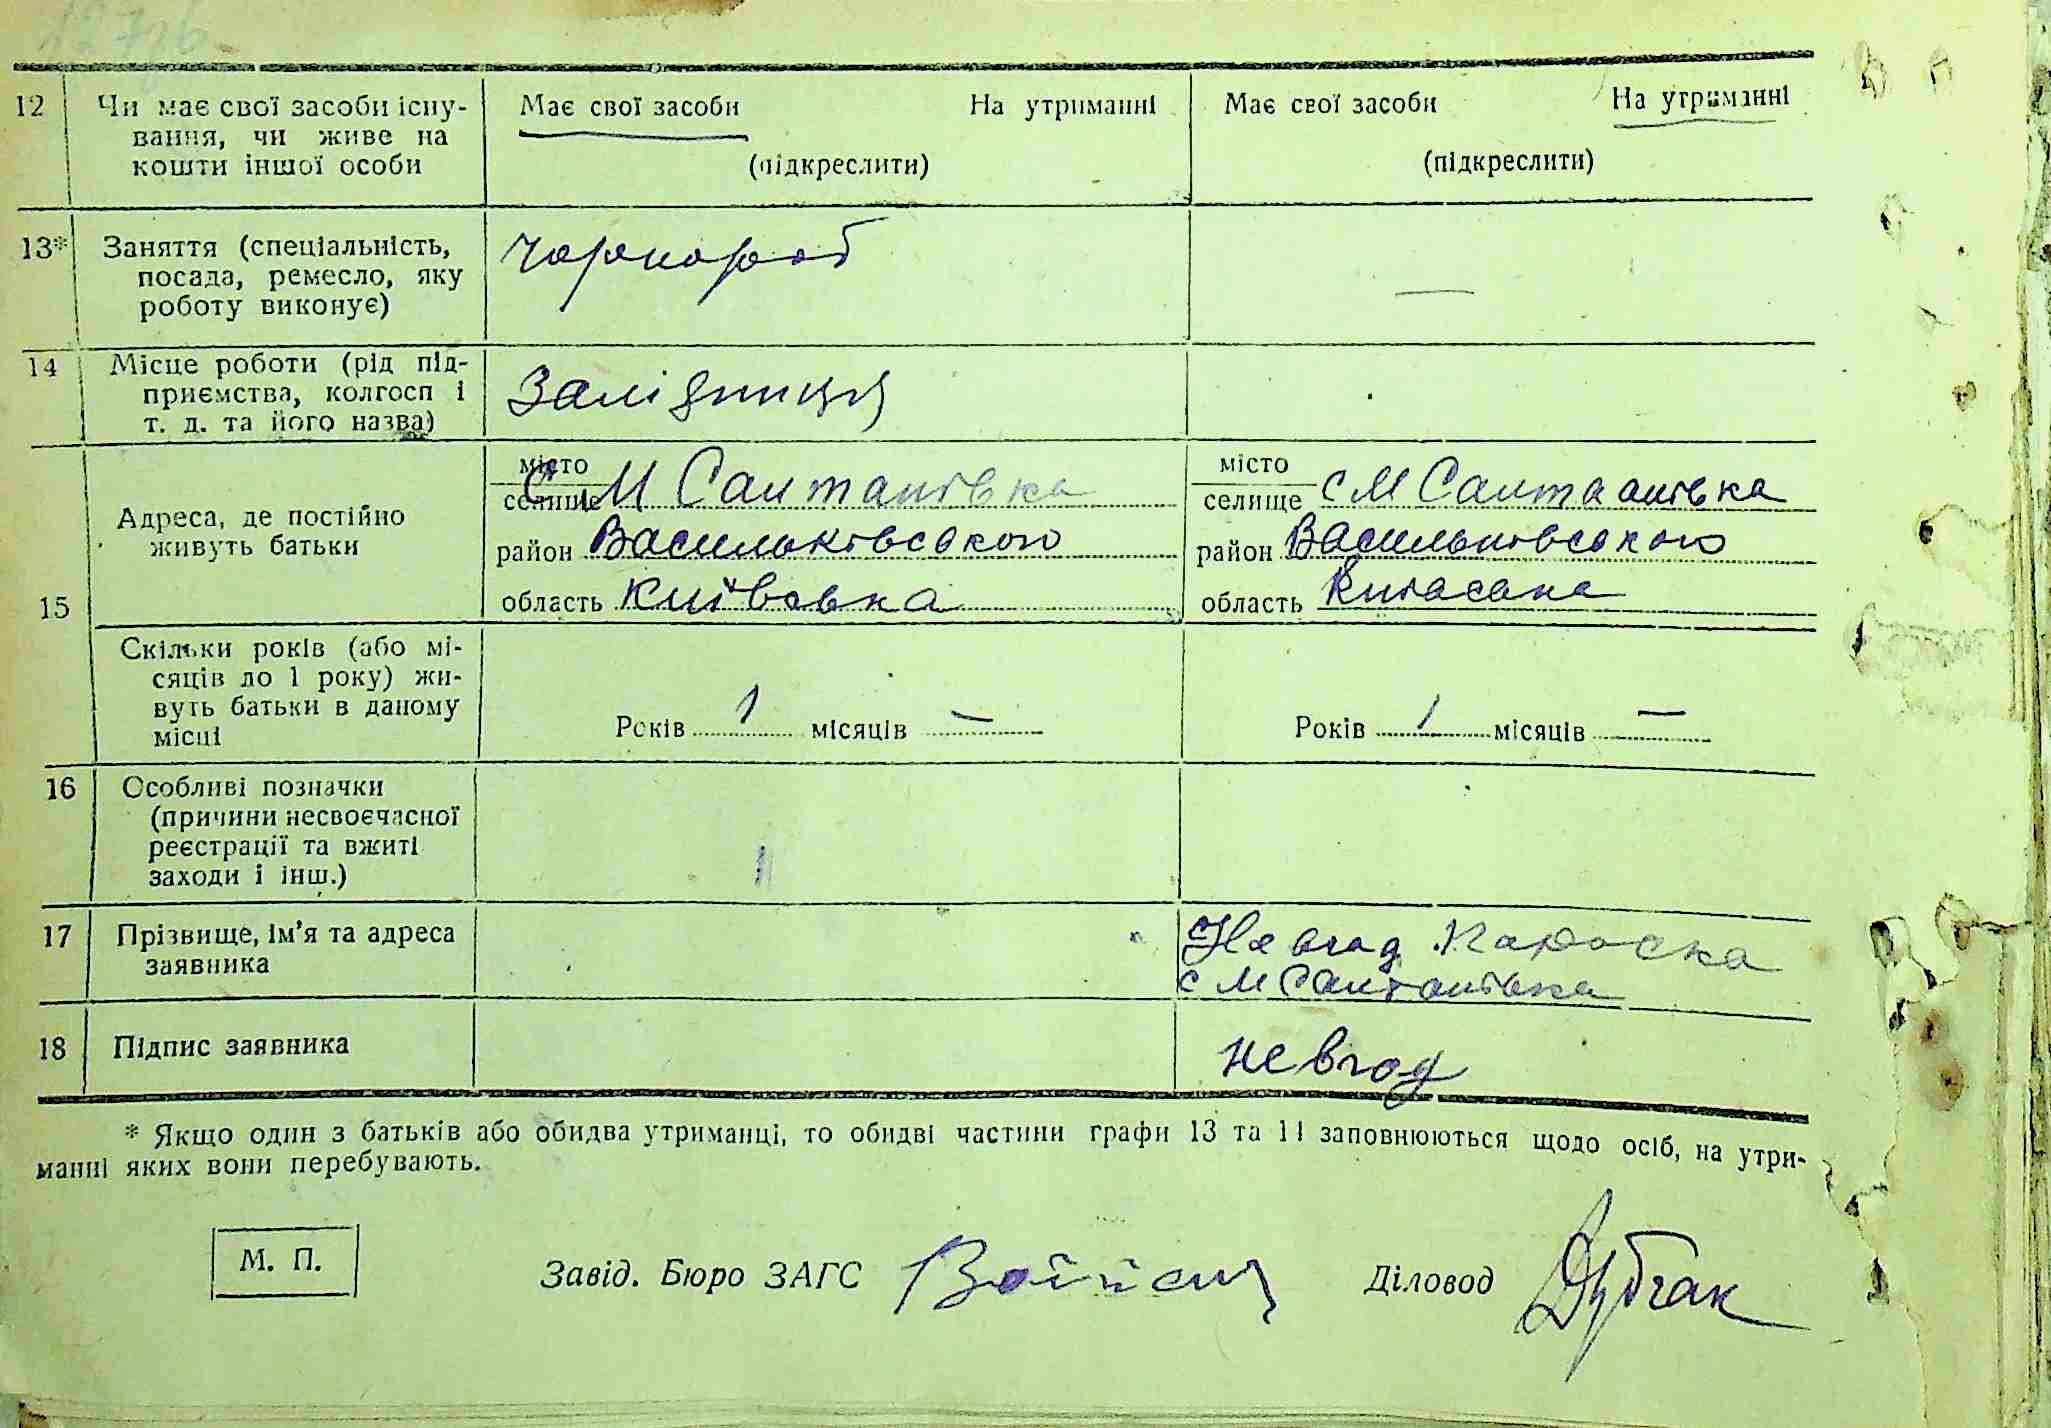 12 Чи має свої засоби існу-
вання, чи живе на
кошти іншої особи
Має свої засоби На утриманні
(підкреслити)
Має свої засоби На утриманні
(підкреслити)
13* Заняття (спеціальність,
посада, ремесло, яку
роботу виконує)
чорнороб
—
14 Місце роботи (рід під-
приємства, колгосп і
т. д. та його назва)
Залізниця
15
Адреса, де постійно
живуть батьки
місто
селище с М Салтанівка
район Васильківського
область Київська
місто
селище с М Салтанівка
район Васильківського
область
Скільки років (або мі-
сяців до 1 року) жи-
вуть батьки в даному
місці
Років 1 місяців —
Років 1 місяців —
16 Особливі позначки
(причини несвоєчасної
реєстрації та вжиті
заходи і інш.)
17 Прізвище, ім’я та адреса
заявника
Невгод
с М Салтанівка
18 Підпис заявника
невгод
* Якщо один з батьків або обидва утриманці, то обидві частини графи 13 та 14 заповнюються щодо осіб, на утри-
манні яких вони перебувають.
М. П.
Завід. Бюро ЗАГС
Діловод Дубчак